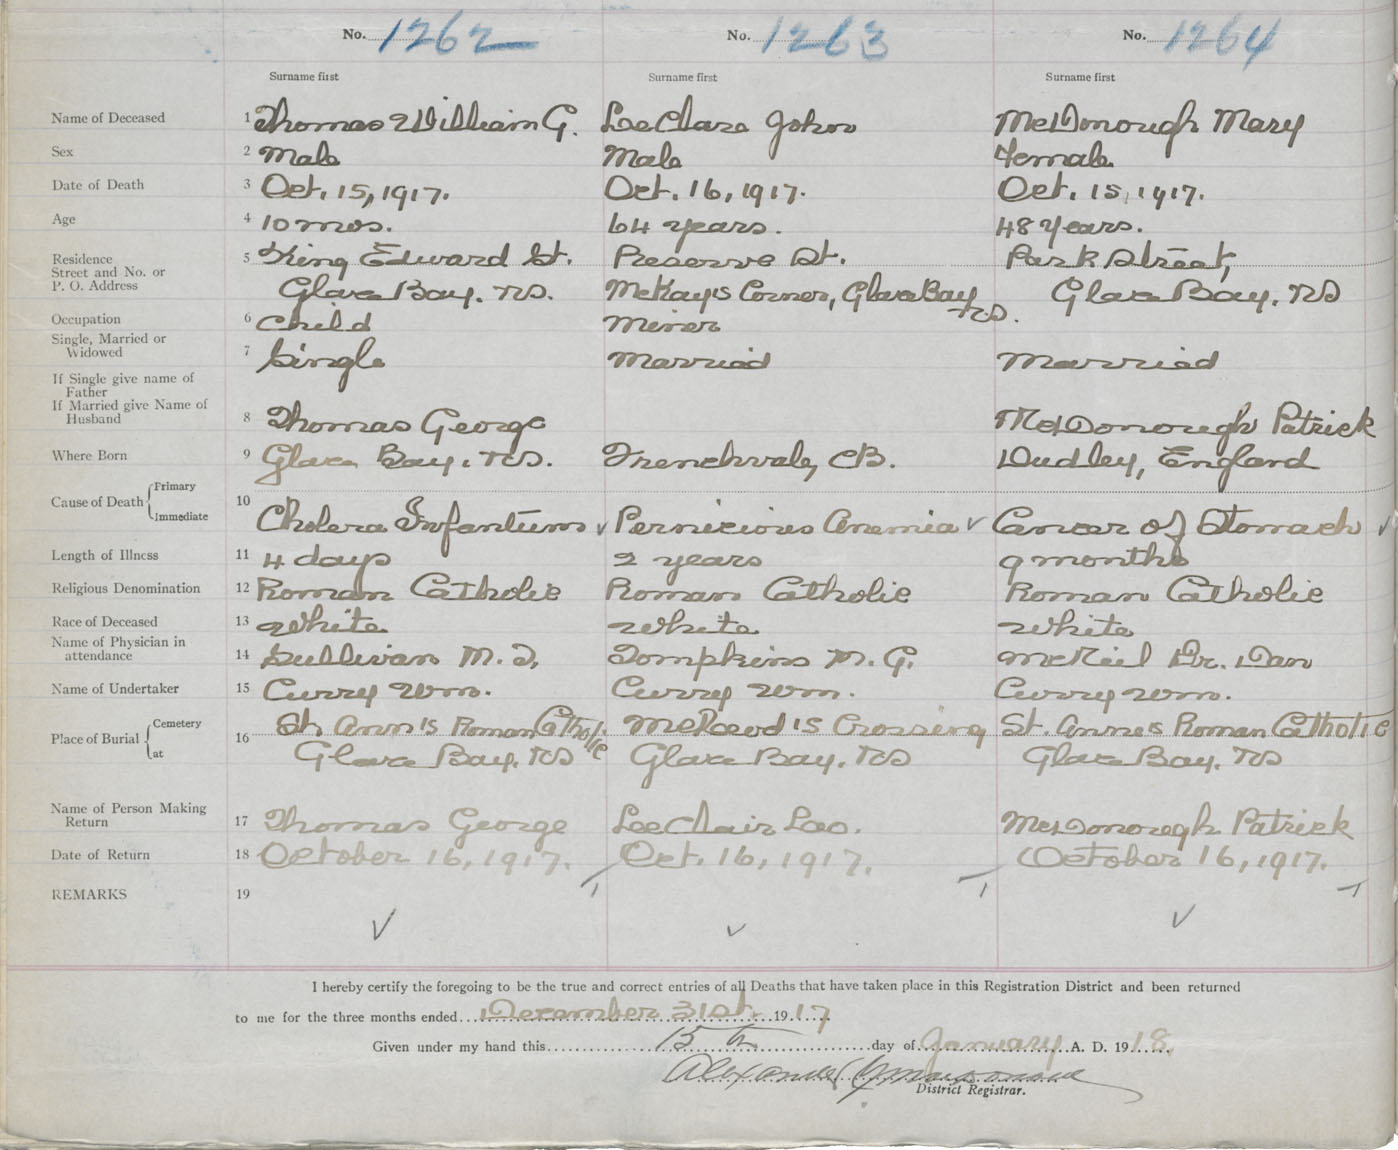 No. 1262 No. 1263 No. 1264
Surname first Surname first Surname first
Name of Deceased 1 Thomas William G. LeClare John McDonough Mary
Sex 2 Male Male Female
Date of Death 3 Oct. 15, 1917. Oct. 16, 1917. Oct. 15, 1917.
Age 4 10 mos. 64 years. 48 years.
Residence 5 King Edward St. Preserve St. Park Street,
Street and No. or
P. O. Address Glace Bay. NS. McKay's Corner, Glace Bay NS. Glace Bay. NS
Occupation 6 Child Miner
Single, Married or
Widowed 7 Single Married Married
If Single give name of
Father
If Married give Name of
Husband 8 Thomas George McDonough Patrick
Where Born 9 Glace Bay. NS. Frenchvale, CB. Dudley, England
Cause of Death { Primary
Immediate 10 Cholera Infantum Pernicious Anemia Cancer of Stomach
Length of Illness 11 4 days 2 years 9 months
Religious Denomination 12 Roman Catholic Roman Catholic Roman Catholic
Race of Deceased 13 White White White
Name of Physician in
attendance 14 Sullivan M. T. Tompkins M. G. McNeil Dr. Dan
Name of Undertaker 15 Curry Wm. Curry Wm. Curry Wm.
Place of Burial { Cemetery 16 St. Ann's Roman Catholic McLeod's Crossing St. Anne's Roman Catholic
at Glace Bay. NS Glace Bay. NS Glace Bay. NS
Name of Person Making
Return 17 Thomas George LeClair Leo. McDonough Patrick
Date of Return 18 October 16, 1917. Oct. 16, 1917. October 16, 1917.
REMARKS 19
I hereby certify the foregoing to be the true and correct entries of all Deaths that have taken place in this Registration District and been returned
to me for the three months ended December 31st. 1917
Given under my hand this 15th day of January A. D. 1918.
Alexander
District Registrar.